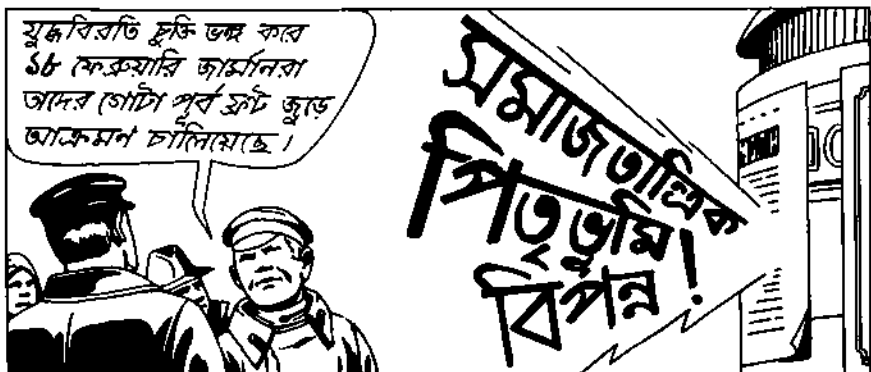 যুদ্ধবিরতি চুক্তি ভঙ্গ করে
১৮ ফেব্রুয়ারি জার্মানরা
তাদের গোটা পূর্ব ফ্রন্ট জুড়ে
আক্রমণ চালিয়েছে।
সমাজতান্ত্রিক
পিতৃভূমি
বিপন্ন!